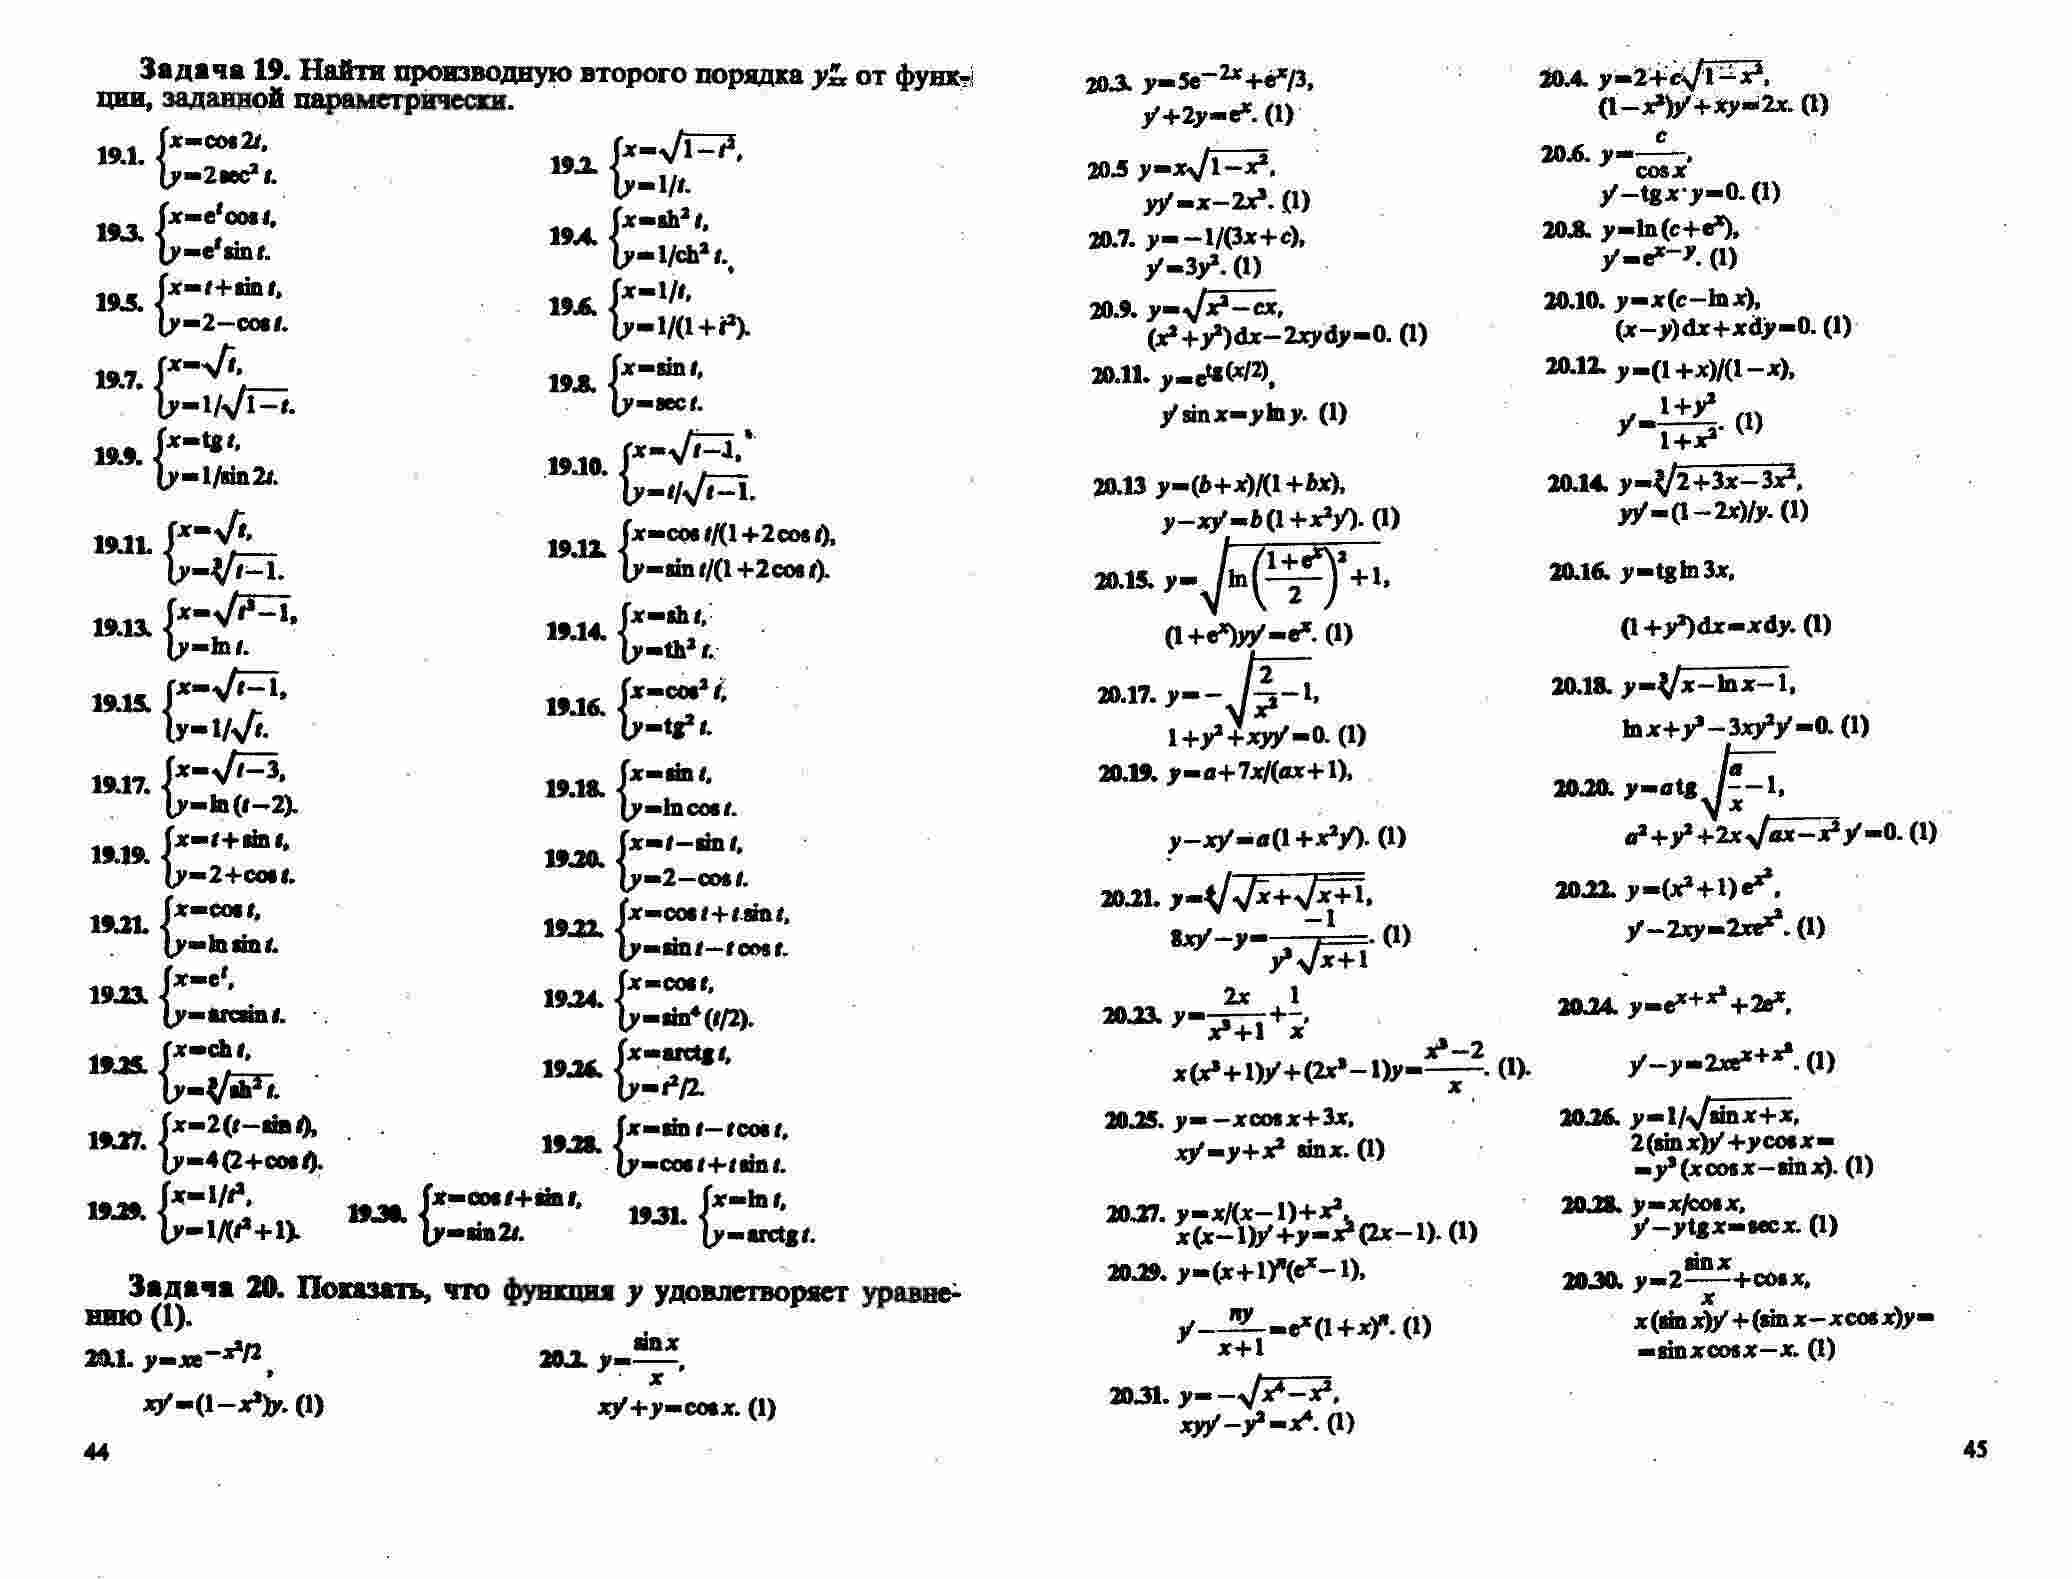 Задача 19. Найти производную второго порядка y″ₓₓ от функ-
ции, заданной параметрически.
19.1. {x=cos 2t, y=2 sec² t.
19.2. {x=√(1−t²), y=1/t.
19.3. {x=eᵗ cos t, y=eᵗ sin t.
19.4. {x=sh² t, y=1/ch² t.
19.5. {x=t+sin t, y=2−cos t.
19.6. {x=1/t, y=1/(1+t²).
19.7. {x=√t, y=1/√(1−t).
19.8. {x=sin t, y=sec t.
19.9. {x=tg t, y=1/sin 2t.
19.10. {x=√(t−1), y=t/√(t−1).
19.11. {x=√t, y=∛(t−1).
19.12. {x=cos t/(1+2cos t), y=sin t/(1+2cos t).
19.13. {x=√(t³−1), y=ln t.
19.14. {x=sh t, y=th² t.
19.15. {x=√(t−1), y=1/√t.
19.16. {x=cos² t, y=tg² t.
19.17. {x=√(t−3), y=ln (t−2).
19.18. {x=sin t, y=ln cos t.
19.19. {x=t+sin t, y=2+cos t.
19.20. {x=t−sin t, y=2−cos t.
19.21. {x=cos t, y=ln sin t.
19.22. {x=cos t+t sin t, y=sin t−t cos t.
19.23. {x=eᵗ, y=arcsin t.
19.24. {x=cos t, y=sin⁴ (t/2).
19.25. {x=ch t, y=∛(sh² t).
19.26. {x=arctg t, y=t²/2.
19.27. {x=2(t−sin t), y=4(2+cos t).
19.28. {x=sin t−t cos t, y=cos t+t sin t.
19.29. {x=1/t², y=1/(t²+1).
19.30. {x=cos t+sin t, y=sin 2t.
19.31. {x=ln t, y=arctg t.
Задача 20. Показать, что функция y удовлетворяет уравне-
нию (1).
20.1. y=xe^(−x²/2),
xy′=(1−x²)y. (1)
20.2. y=sin x/x,
xy′+y=cos x. (1)
44
20.3. y=5e^(−2x)+eˣ/3,
y′+2y=eˣ. (1)
20.4. y=2+c√(1−x²),
(1−x²)y′+xy=2x. (1)
20.5 y=x√(1−x²),
yy′=x−2x³. (1)
20.6. y=c/cos x,
y′−tg x·y=0. (1)
20.7. y=−1/(3x+c),
y′=3y². (1)
20.8. y=ln (c+eˣ),
y′=e^(x−y). (1)
20.9. y=√(x²−cx),
(x²+y²)dx−2xy dy=0. (1)
20.10. y=x(c−ln x),
(x−y)dx+x dy=0. (1)
20.11. y=e^(tg (x/2)),
y′ sin x=y ln y. (1)
20.12. y=(1+x)/(1−x),
y′=(1+y²)/(1+x²). (1)
20.13 y=(b+x)/(1+bx),
y−xy′=b(1+x²y′). (1)
20.14. y=∛(2+3x−3x²),
yy′=(1−2x)/y. (1)
20.15. y=√(ln((1+eˣ)/2)²+1),
(1+eˣ)yy′=eˣ. (1)
20.16. y=tg ln 3x,
(1+y²)dx=x dy. (1)
20.17. y=−√(2/x²−1),
1+y²+xyy′=0. (1)
20.18. y=∛(x−ln x−1),
ln x+y³−3xy²y′=0. (1)
20.19. y=a+7x/(ax+1),
y−xy′=a(1+x²y′). (1)
20.20. y=a tg √(a/x−1),
a²+y²+2x√(ax−x²) y′=0. (1)
20.21. y=⁴√(√x+√(x+1)),
8xy′−y=−1/(y³√(x+1)). (1)
20.22. y=(x²+1)e^(x²),
y′−2xy=2xe^(x²). (1)
20.23. y=2x/(x³+1)+1/x,
x(x³+1)y′+(2x³−1)y=(x³−2)/x. (1).
20.24. y=e^(x+x²)+2eˣ,
y′−y=2xe^(x+x²). (1)
20.25. y=−x cos x+3x,
xy′=y+x² sin x. (1)
20.26. y=1/√(sin x+x),
2(sin x)y′+y cos x=
=y³(x cos x−sin x). (1)
20.27. y=x/(x−1)+x²,
x(x−1)y′+y=x²(2x−1). (1)
20.28. y=x/cos x,
y′−y tg x=sec x. (1)
20.29. y=(x+1)ⁿ(eˣ−1),
y′−ny/(x+1)=eˣ(1+x)ⁿ. (1)
20.30. y=2 sin x/x+cos x,
x(sin x)y′+(sin x−x cos x)y=
=sin x cos x−x. (1)
20.31. y=−√(x⁴−x²),
xyy′−y²=x⁴. (1)
45